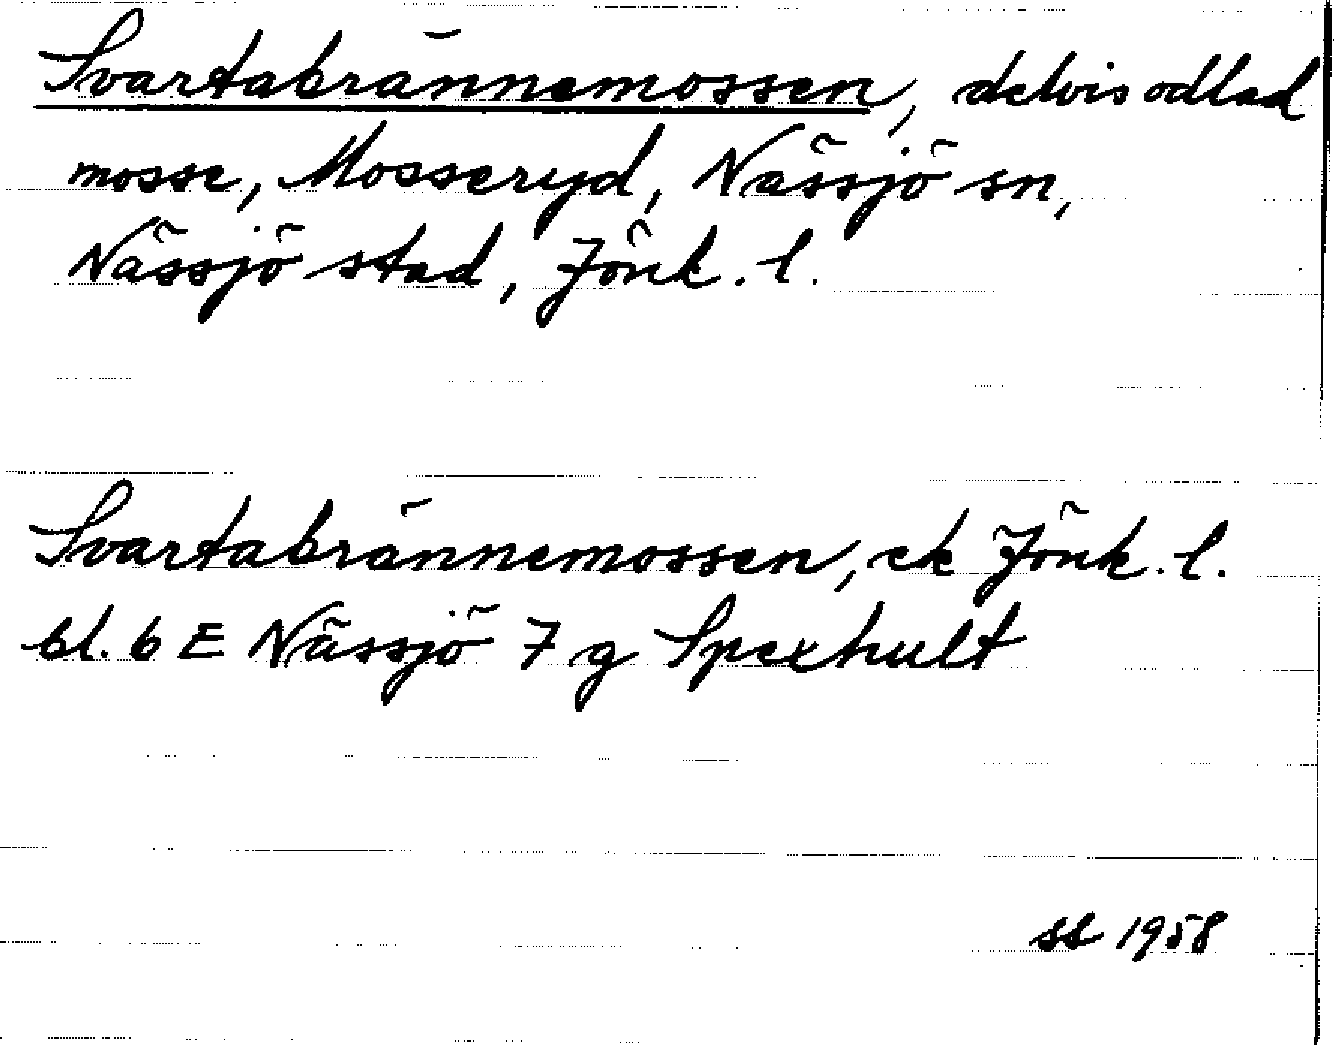 Svartabrännemossen, delvis odlad
mosse, Mosseryd, Nässjö sn,
Nässjö stad, Jönk. l.
Svartabrännemossen, ek Jönk. l.
bl. 6 E Nässjö 7 g Spexhult
SL 1958